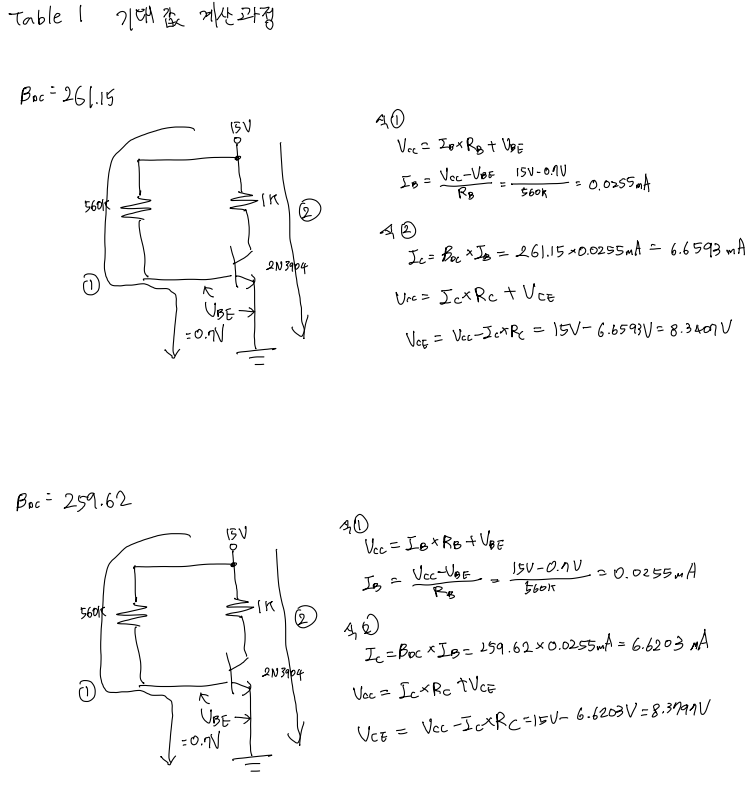 Table 1 기대 값 계산과정
βDC = 261.15
15V
560K
1K
②
2N3904
①
VBE
= 0.7V
식①
Vcc = IB×RB + VBE
IB = (Vcc-VBE)/RB = (15V-0.7V)/560K = 0.0255mA
식②
Ic = βDC × IB = 261.15×0.0255mA = 6.6593 mA
Vcc = Ic×Rc + VCE
VCE = Vcc-Ic×Rc = 15V - 6.6593V = 8.3407V
βDC = 259.62
15V
560K
1K
②
2N3904
①
VBE
= 0.7V
식①
Vcc = IB×RB + VBE
IB = (Vcc-VBE)/RB = (15V-0.7V)/560K = 0.0255mA
식②
Ic = βDC × IB = 259.62×0.0255mA = 6.6203 mA
Vcc = Ic×Rc + VCE
VCE = Vcc - Ic×Rc = 15V - 6.6203V = 8.3797V